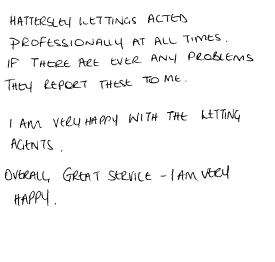 HATTERSLEY LETTINGS ACTED
PROFESSIONALLY AT ALL TIMES.
IF THERE ARE EVER ANY PROBLEMS
THEY REPORT THESE TO ME.
I AM VERY HAPPY WITH THE LETTING
AGENTS.
OVERALL, GREAT SERVICE - I AM VERY
HAPPY.